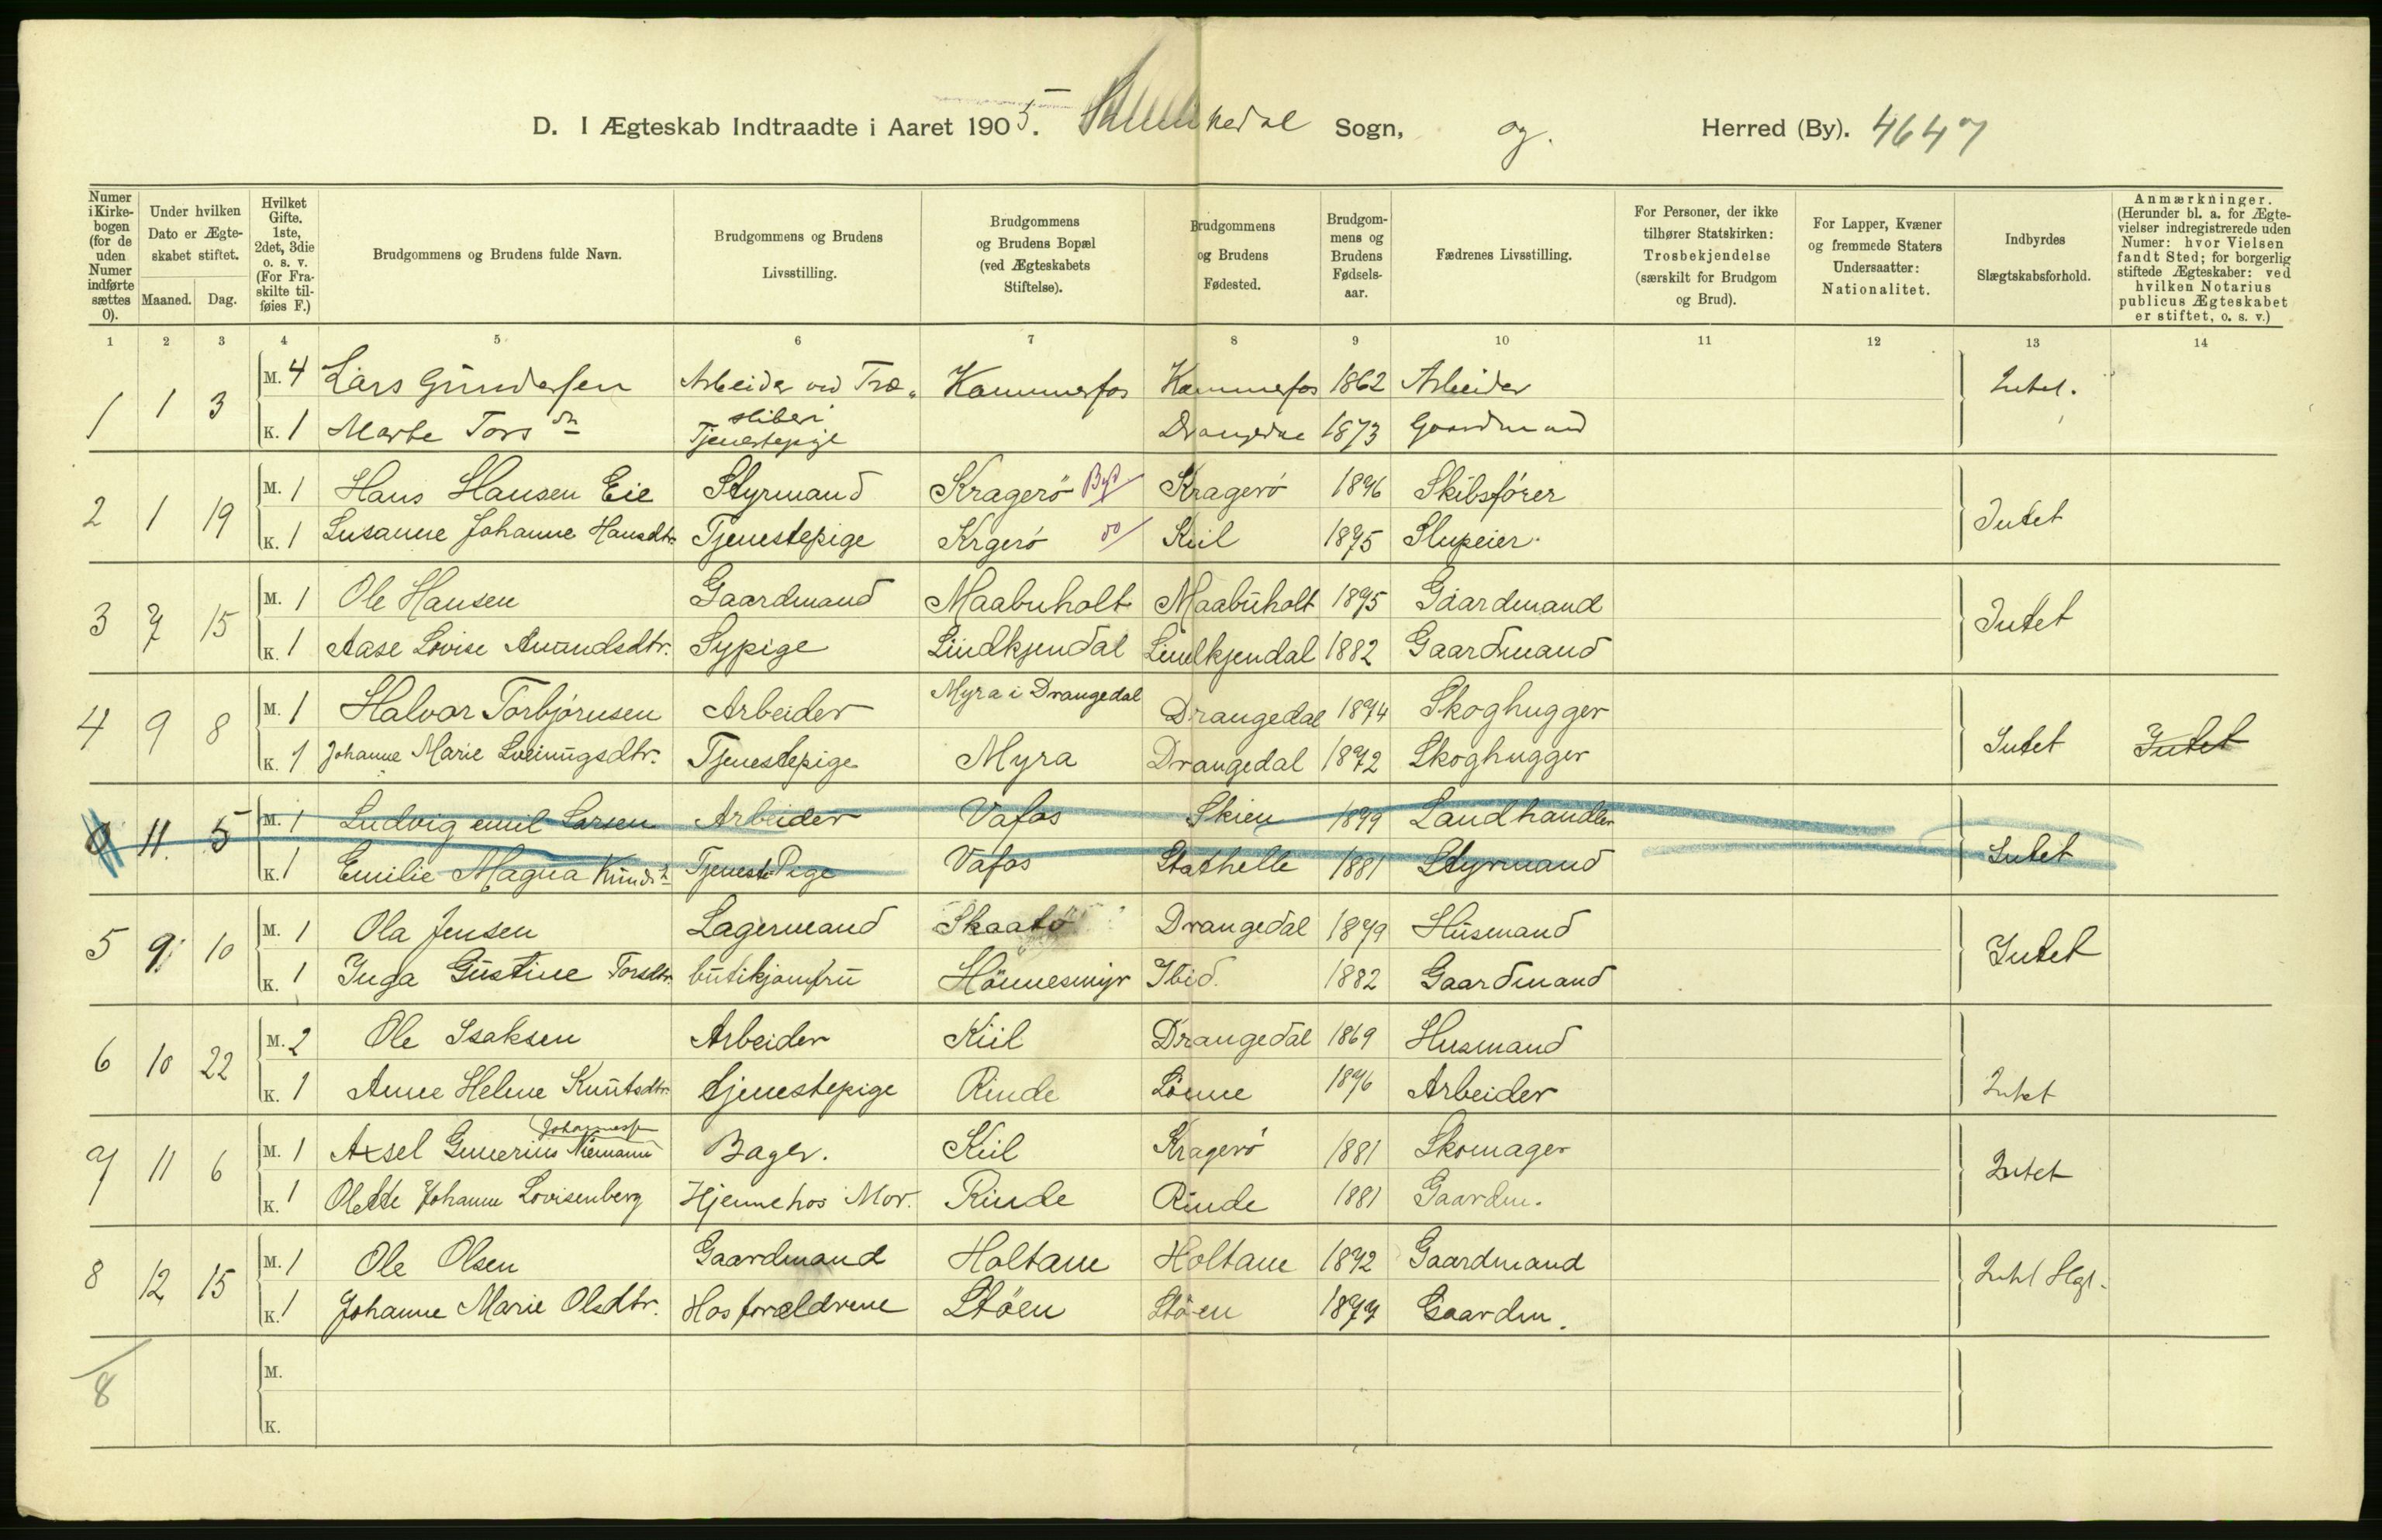 D. I Ægteskab Indtraadte i Aaret 1905. Sannikedal Sogn, og. Herred (By). 4647
Numer i Kirkebogen (for de uden Numer indførte sættes 0).
Under hvilken Dato er Ægteskabet stiftet.
Maaned. Dag.
Hvilket Gifte. 1ste, 2det, 3die o. s. v. (For Fraskilte tilføies F.)
Brudgommens og Brudens fulde Navn.
Brudgommens og Brudens Livsstilling.
Brudgommens og Brudens Bopæl (ved Ægteskabets Stiftelse).
Brudgommens og Brudens Fødested.
Brudgommens og Brudens Fødselsaar.
Fædrenes Livsstilling.
For Personer, der ikke tilhører Statskirken: Trosbekjendelse (særskilt for Brudgom og Brud).
For Lapper, Kvæner og fremmede Staters Undersaatter: Nationalitet.
Indbyrdes Slægtskabsforhold.
Anmærkninger. (Herunder bl. a. for Ægtevielser indregistrerede uden Numer: hvor Vielsen fandt Sted; for borgerlig stiftede Ægteskaber: ved hvilken Notarius publicus Ægteskabet er stiftet, o. s. v.)
1 2 3 4 5 6 7 8 9 10 11 12 13 14
1 1 3 M. 4 Lars Gundersen Arbeider ved Træsliberi Kammerfos Kammerfos 1862 Arbeider Intet.
K. 1 Marte Torsdr Tjenestepige Drangedal 1873 Gaardmand
2 1 19 M. 1 Hans Hansen Eie Styrmand Kragerö By Kragerö 1876 Skibsfører Intet
K. 1 Susanne Johanne Hansdtr. Tjenestepige Krgerö do Kiil 1875 Slupeier.
3 7 15 M. 1 Ole Hansen Gaardmand Maabuholt Maabuholt 1875 Gaardmand Intet
K. 1 Aase Lovise Anundsdtr. Sypige Lindkjendal Lindkjendal 1882 Gaardmand
4 9 8 M. 1 Halvor Torbjørnsen Arbeider Myra i Drangedal Drangedal 1874 Skoghugger
K. 1 Johanne Marie Sveinugsdtr. Tjenestepige Myra Drangedal 1872 Skoghugger Intet Intet
0 11. 5 M. 1 Ludvig emil Larsen Arbeider Vafos Skien 1879 Landhandler Intet
K. 1 Emilie Magna Knudsdr TjenestePige Vafos Stathelle 1881 Styrmand
5 9. 10 M. 1 Ola Jensen Lagermand Skaatö Drangedal 1879 Husmand Intet
K. 1 Inga Gustine Torsdtr. butikjomfru Hönnesmyr Ibid. 1882 Gaardmand
6 10 22 M. 2 Ole Isaksen Arbeider Kiil Drangedal 1869 Husmand
K. 1 Anne Helene Knutsdtr. tjenestepige Rinde Lönne 1876 Arbeider Intet
7 11 6 M. 1 Axsel Gunerius Johannessen Niemann Bager. Kiil Kragerö 1881 Skomager Intet
K. 1 Olette Johanne Lovisenberg Hjemme hos Mor. Rinde Rinde 1881 Gaardm.
8 12 15 M. 1 Ole Olsen Gaardmand Holtane Holtane 1872 Gaardmand Intet Slgt.
K. 1 Johanne Marie Olsdtr. Hos forældrene Stöen Stöen 1877 Gaardm.
8 M.
K.